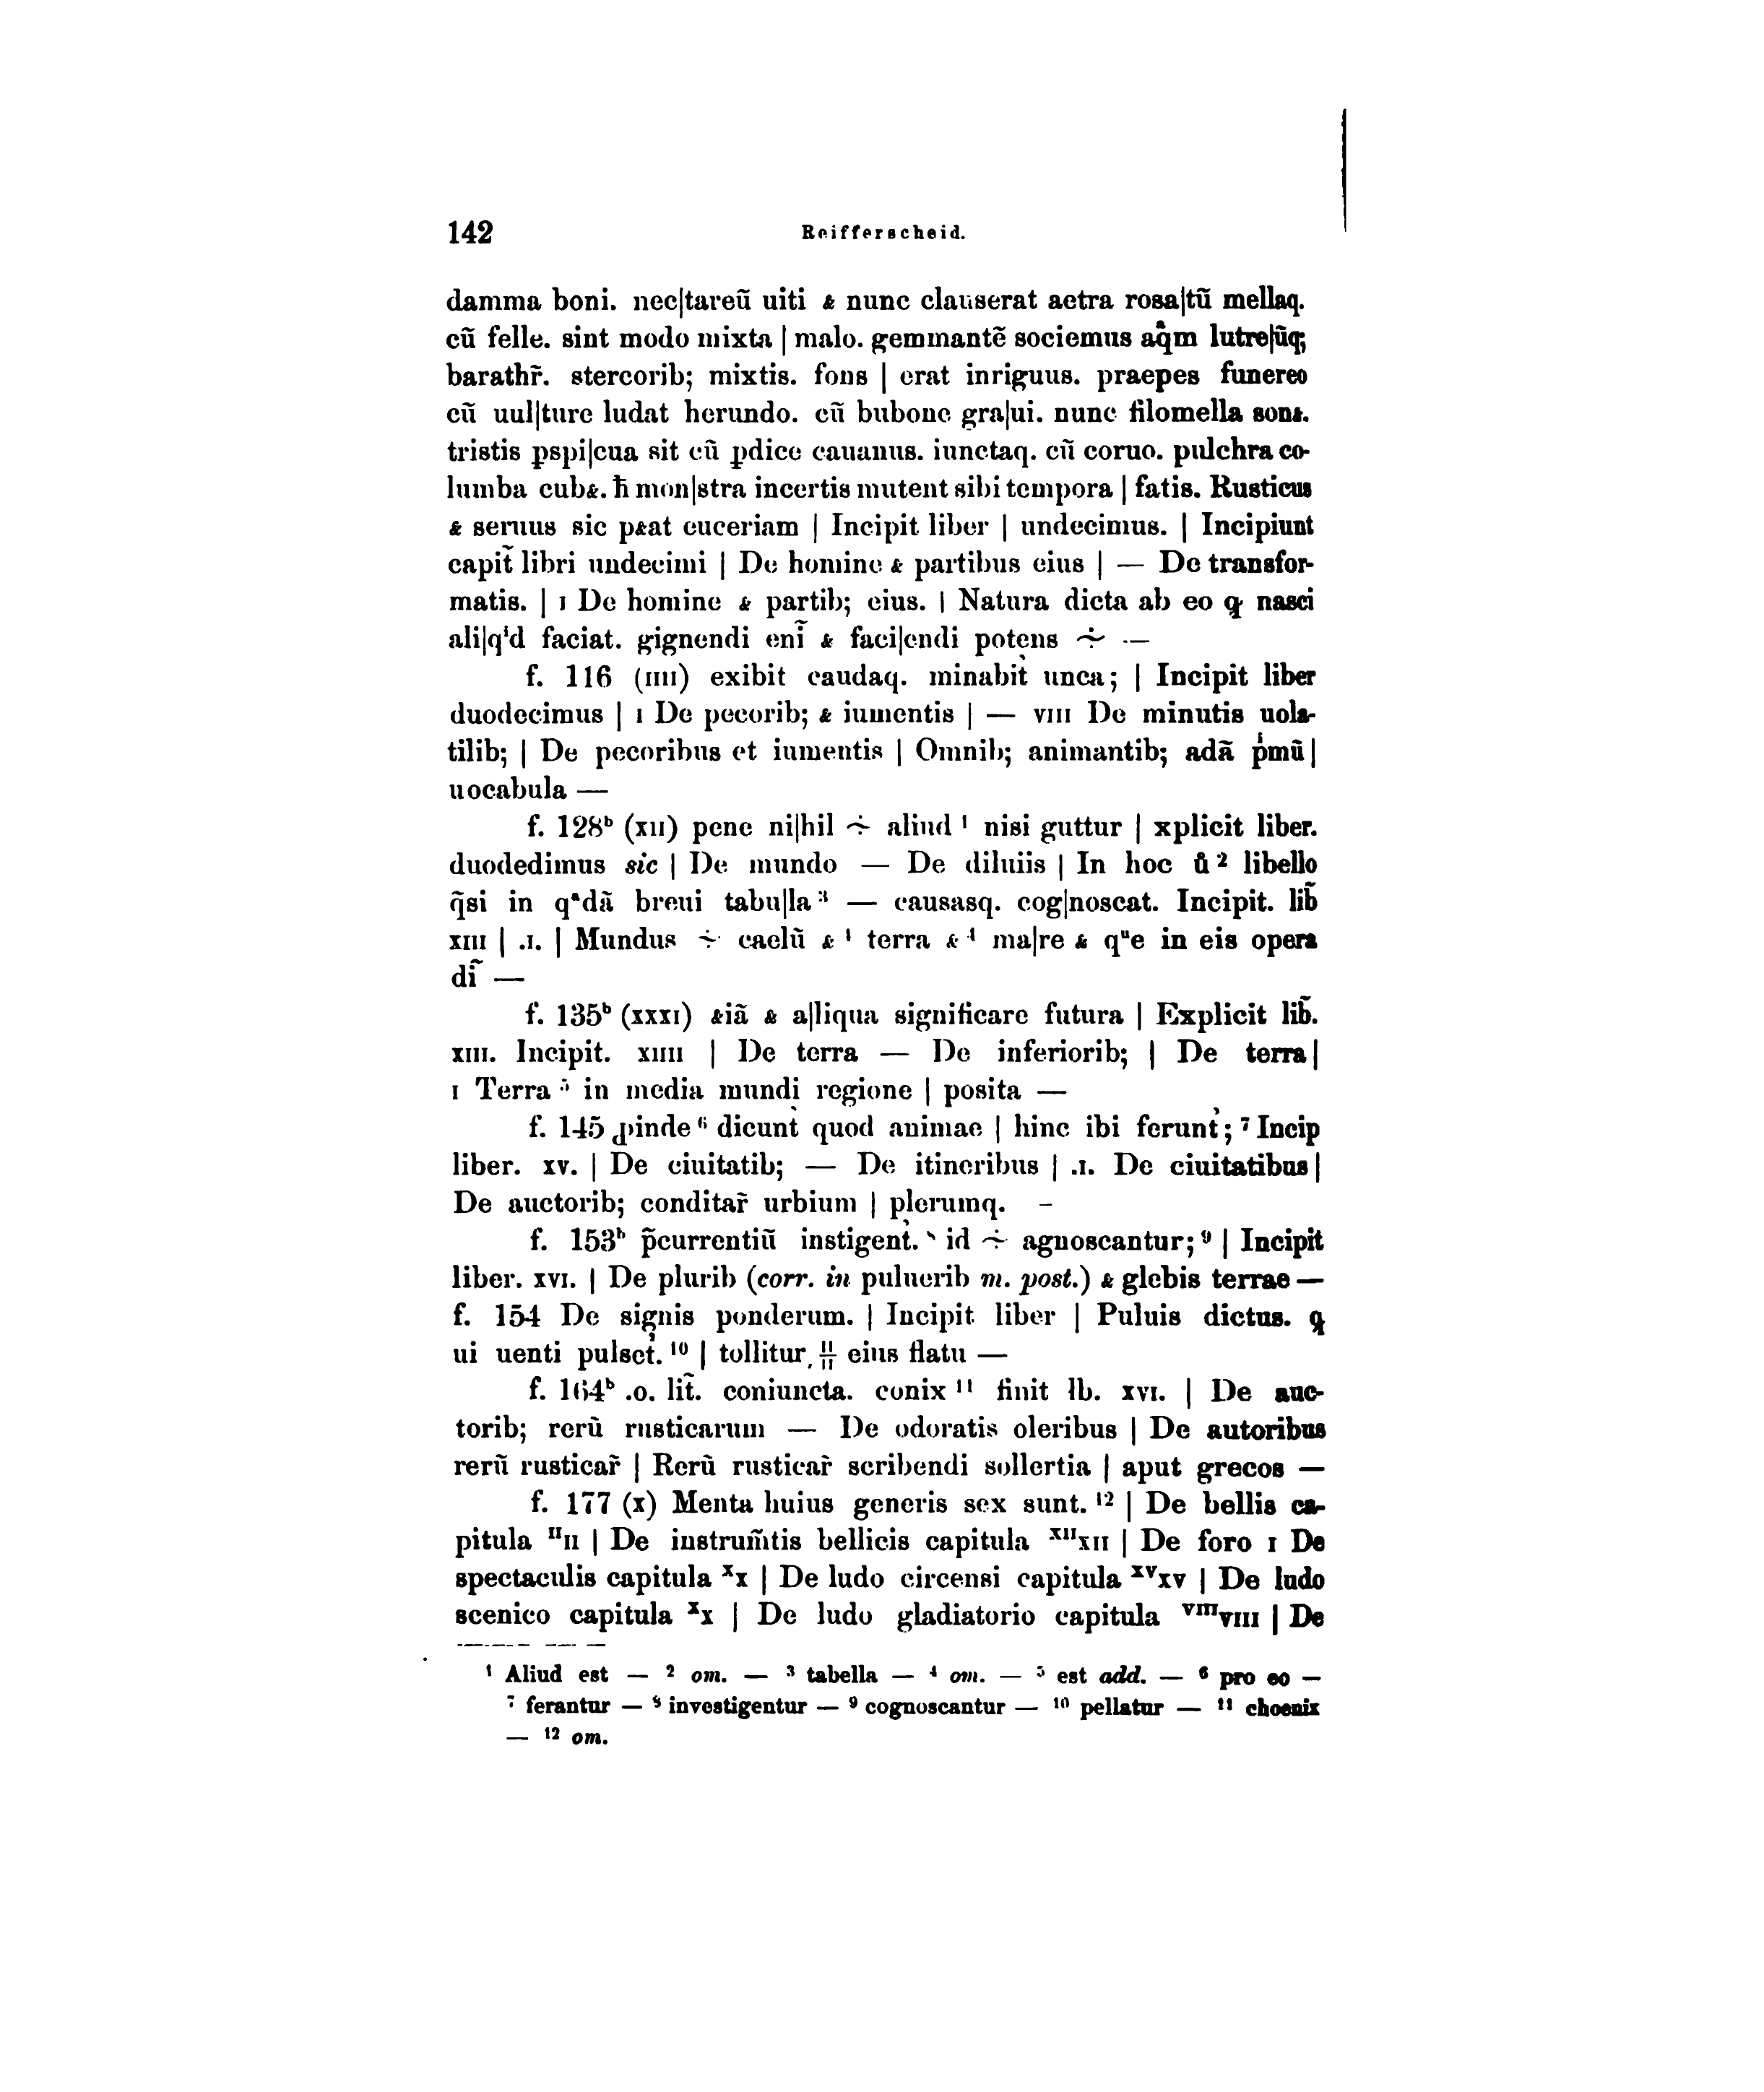 142 Reifferscheid.
damma boni. nec|tareũ uiti & nunc clauserat aetra rosa|tũ mellaq.
cũ felle. sint modo mixta | malo. gemmantẽ sociemus aq̊m lutre|ũq;
barathr̃. stercorib; mixtis. fons | erat inriguus. praepes funereo
cũ uul|ture ludat herundo. cũ bubone gra|ui. nunc filomella son&.
tristis ꝑspi|cua sit cũ ꝑdice cauanus. iunctaq. cũ coruo. pulchra co-
lumba cub&. ħ mon|stra incertis mutent sibi tempora | fatis. Rusticus
& seruus sic p&at euceriam | Incipit liber | undecimus. | Incipiunt
capit̃ libri undecimi | De homine & partibus eius | — De transfor-
matis. | I De homine & partib; eius. | Natura dicta ab eo ꝙ nasci
ali|qⁱd faciat. gignendi enĩ & faci|endi potens ∻ —
f. 116 (IIII) exibit caudaq. minabit᾿ unca; | Incipit liber
duodecimus | I De pecorib; & iumentis | — VIII De minutis uola-
tilib; | De pecoribus et iumentis | Omnib; animantib; adã pⁱmũ |
uocabula —
f. 128ᵇ (XII) pene ni|hil ∻ aliud ¹ nisi guttur | xplicit liber.
duodedimus sic | De mundo — De diluiis | In hoc ů ² libello
q̃si in qᵃdã breui tabu|la ³ — causasq. cog|noscat. Incipit. lib̃
XIII | .I. | Mundus ∻ caelũ & ⁴ terra & ⁴ ma|re & qᵘe in eis opera
dĩ —
f. 135ᵇ (XXXI) &iã & a|liqua significare futura | Explicit lib̃.
XIII. Incipit. XIIII | De terra — De inferiorib; | De terra |
I Terra ⁵ in media mundi regione | posita —
f. 145 ꝓinde ⁶ dicunt᾿ quod animae | hinc ibi ferunt᾿; ⁷ Incip
liber. XV. | De ciuitatib; — De itineribus | .I. De ciuitatibus |
De auctorib; conditar̃ urbium | plerumq. –
f. 153ᵇ p̃currentiũ instigent᾿. ⁸ id ∻ agnoscantur; ⁹ | Incipit
liber. XVI. | De plurib (corr. in puluerib m. post.) & glebis terrae —
f. 154 De signis ponderum. | Incipit liber | Puluis dictus. ꝙ
ui uenti pulset᾿. ¹⁰ | tollitur, eius flatu —
f. 164ᵇ .o. lit̃. coniuncta. conix ¹¹ finit lb. XVI. | De auc-
torib; rerũ rusticarum — De odoratis oleribus | De autoribus
rerũ rusticar̃ | Rerũ rusticar̃ scribendi sollertia | aput grecos —
f. 177 (X) Menta huius generis sex sunt. ¹² | De bellis ca-
pitula ᴵᴵII | De instrum̃tis bellicis capitula ˣᴵᴵXII | De foro I De
spectaculis capitula ˣX | De ludo circensi capitula ˣⱽXV | De ludo
scenico capitula ˣX | De ludo gladiatorio capitula ⱽᴵᴵᴵVIII | De
¹ Aliud est — ² om. — ³ tabella — ⁴ om. — ⁵ est add. — ⁶ pro eo —
⁷ ferantur — ⁸ investigentur — ⁹ cognoscantur — ¹⁰ pellatur — ¹¹ choenix
— ¹² om.